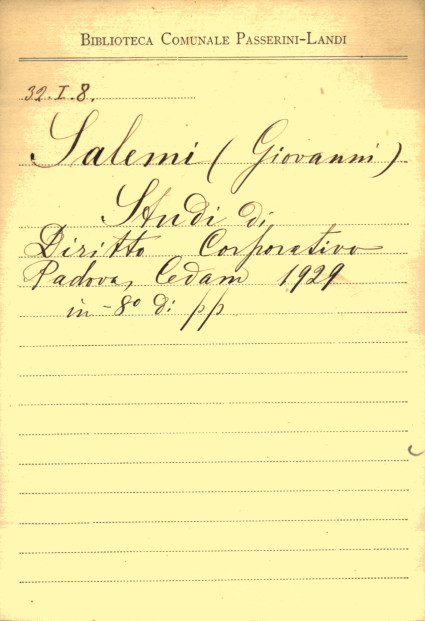 BIBLIOTECA COMUNALE PASSERINI-LANDI
32.I.8.
Salemi (Giovanni)
Studi di
Diritto Corporativo
Padova, Cedam 1929
in-8º di pp